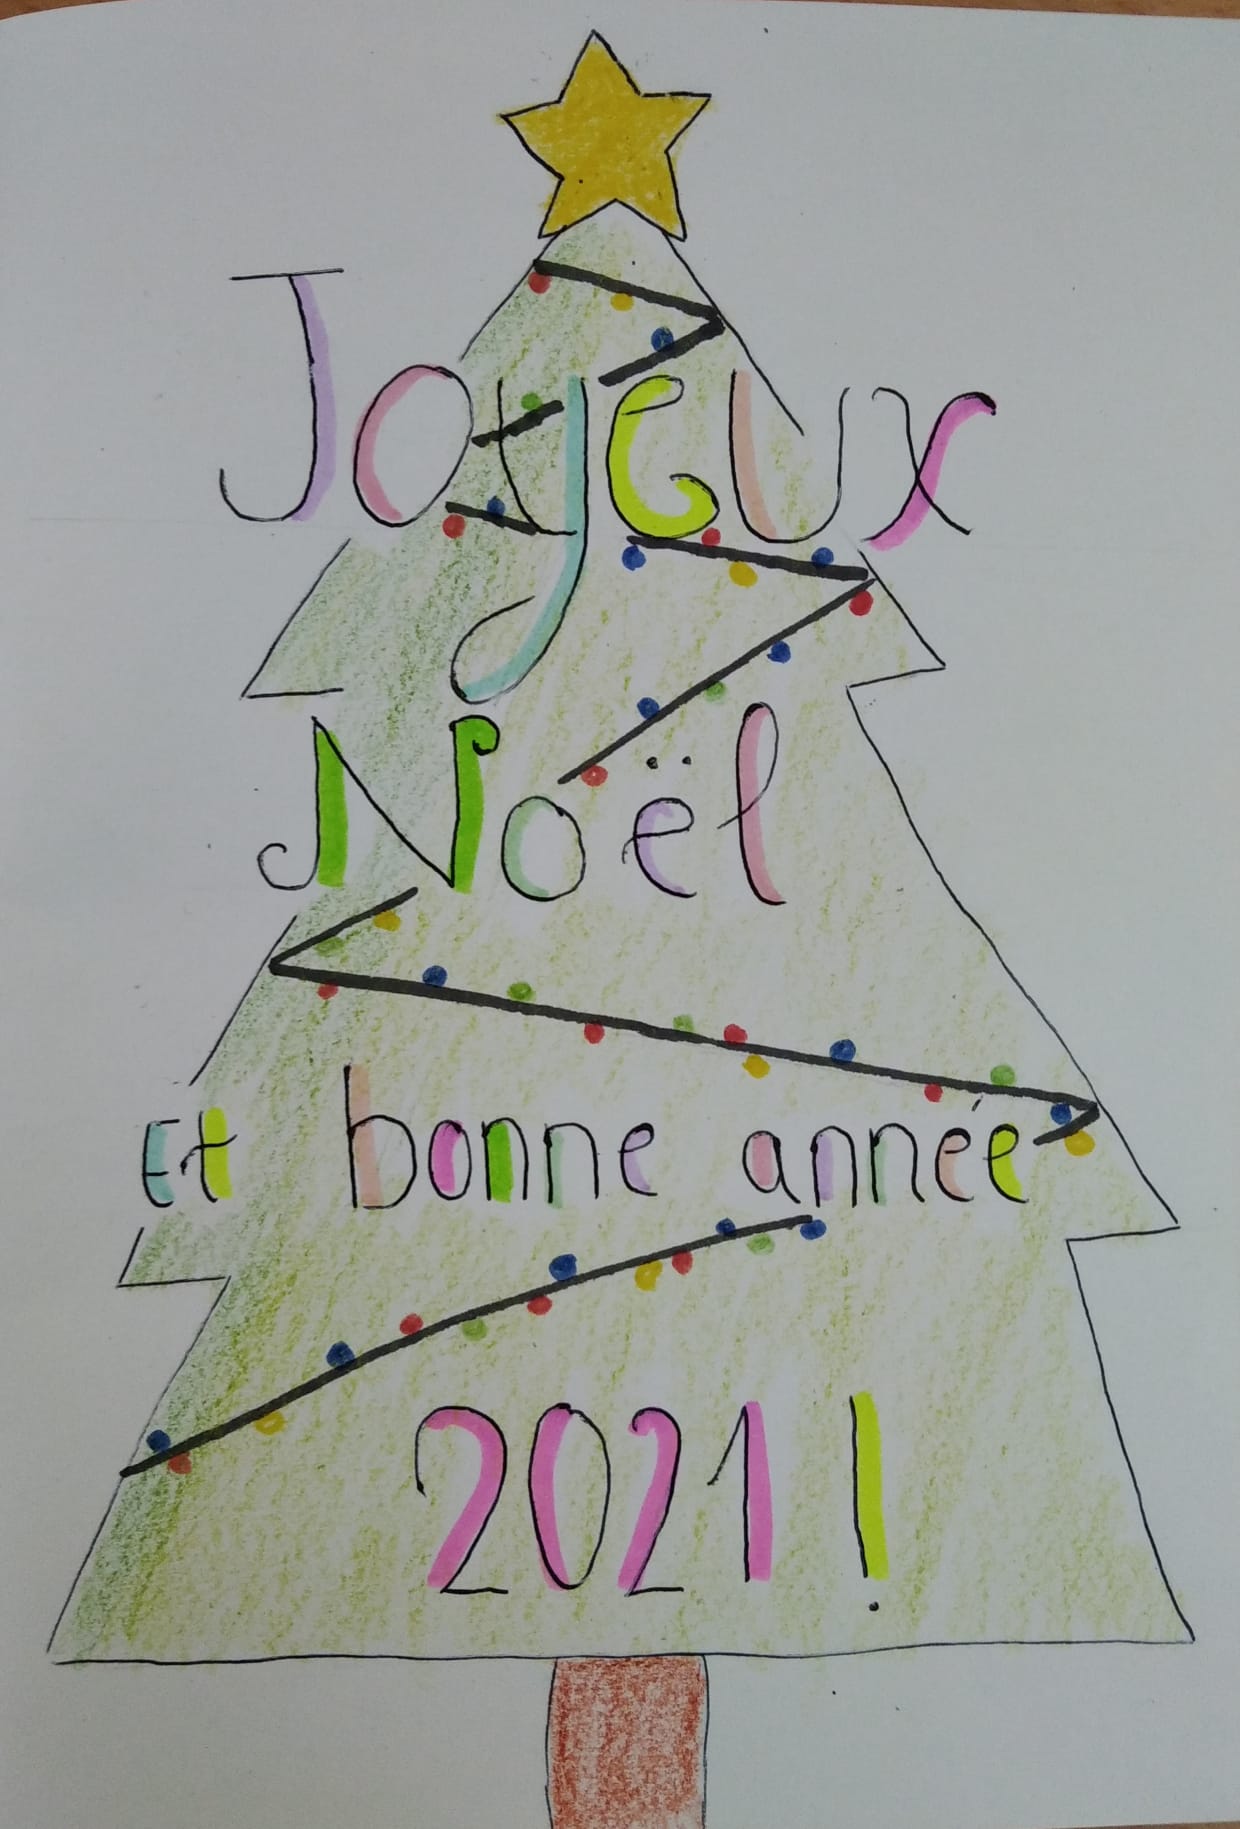 Joyeux
Noël
Et bonne année
2021!